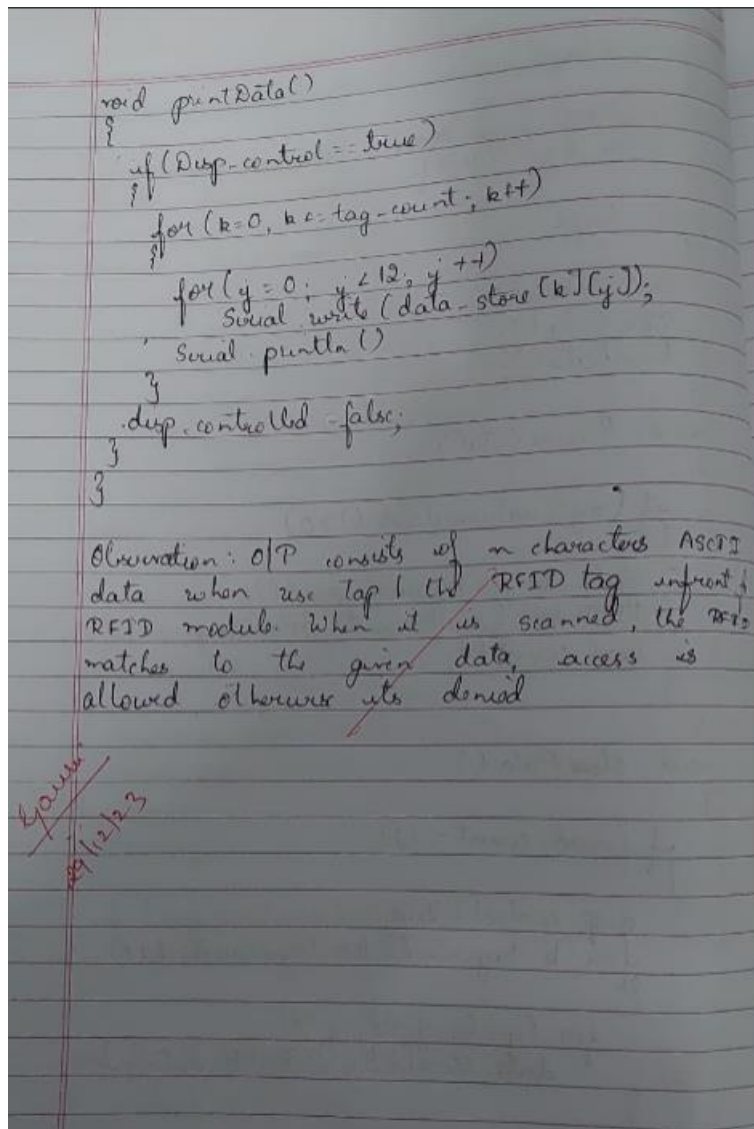 void printData()
{
if (Disp-control == true)
{
for (k=0, k<=tag-count; k++)
{
for (y=0; y<12, y++)
Serial write (data-store[k][y]);
Serial println()
}
disp.controlled = false;
}
}
Observation: O/P consists of n characters ASCII
data when use tap the RFID tag infront
RFID module. When it is scanned, the RFID
matches to the given data, access is
allowed otherwise its denied
29/12/23